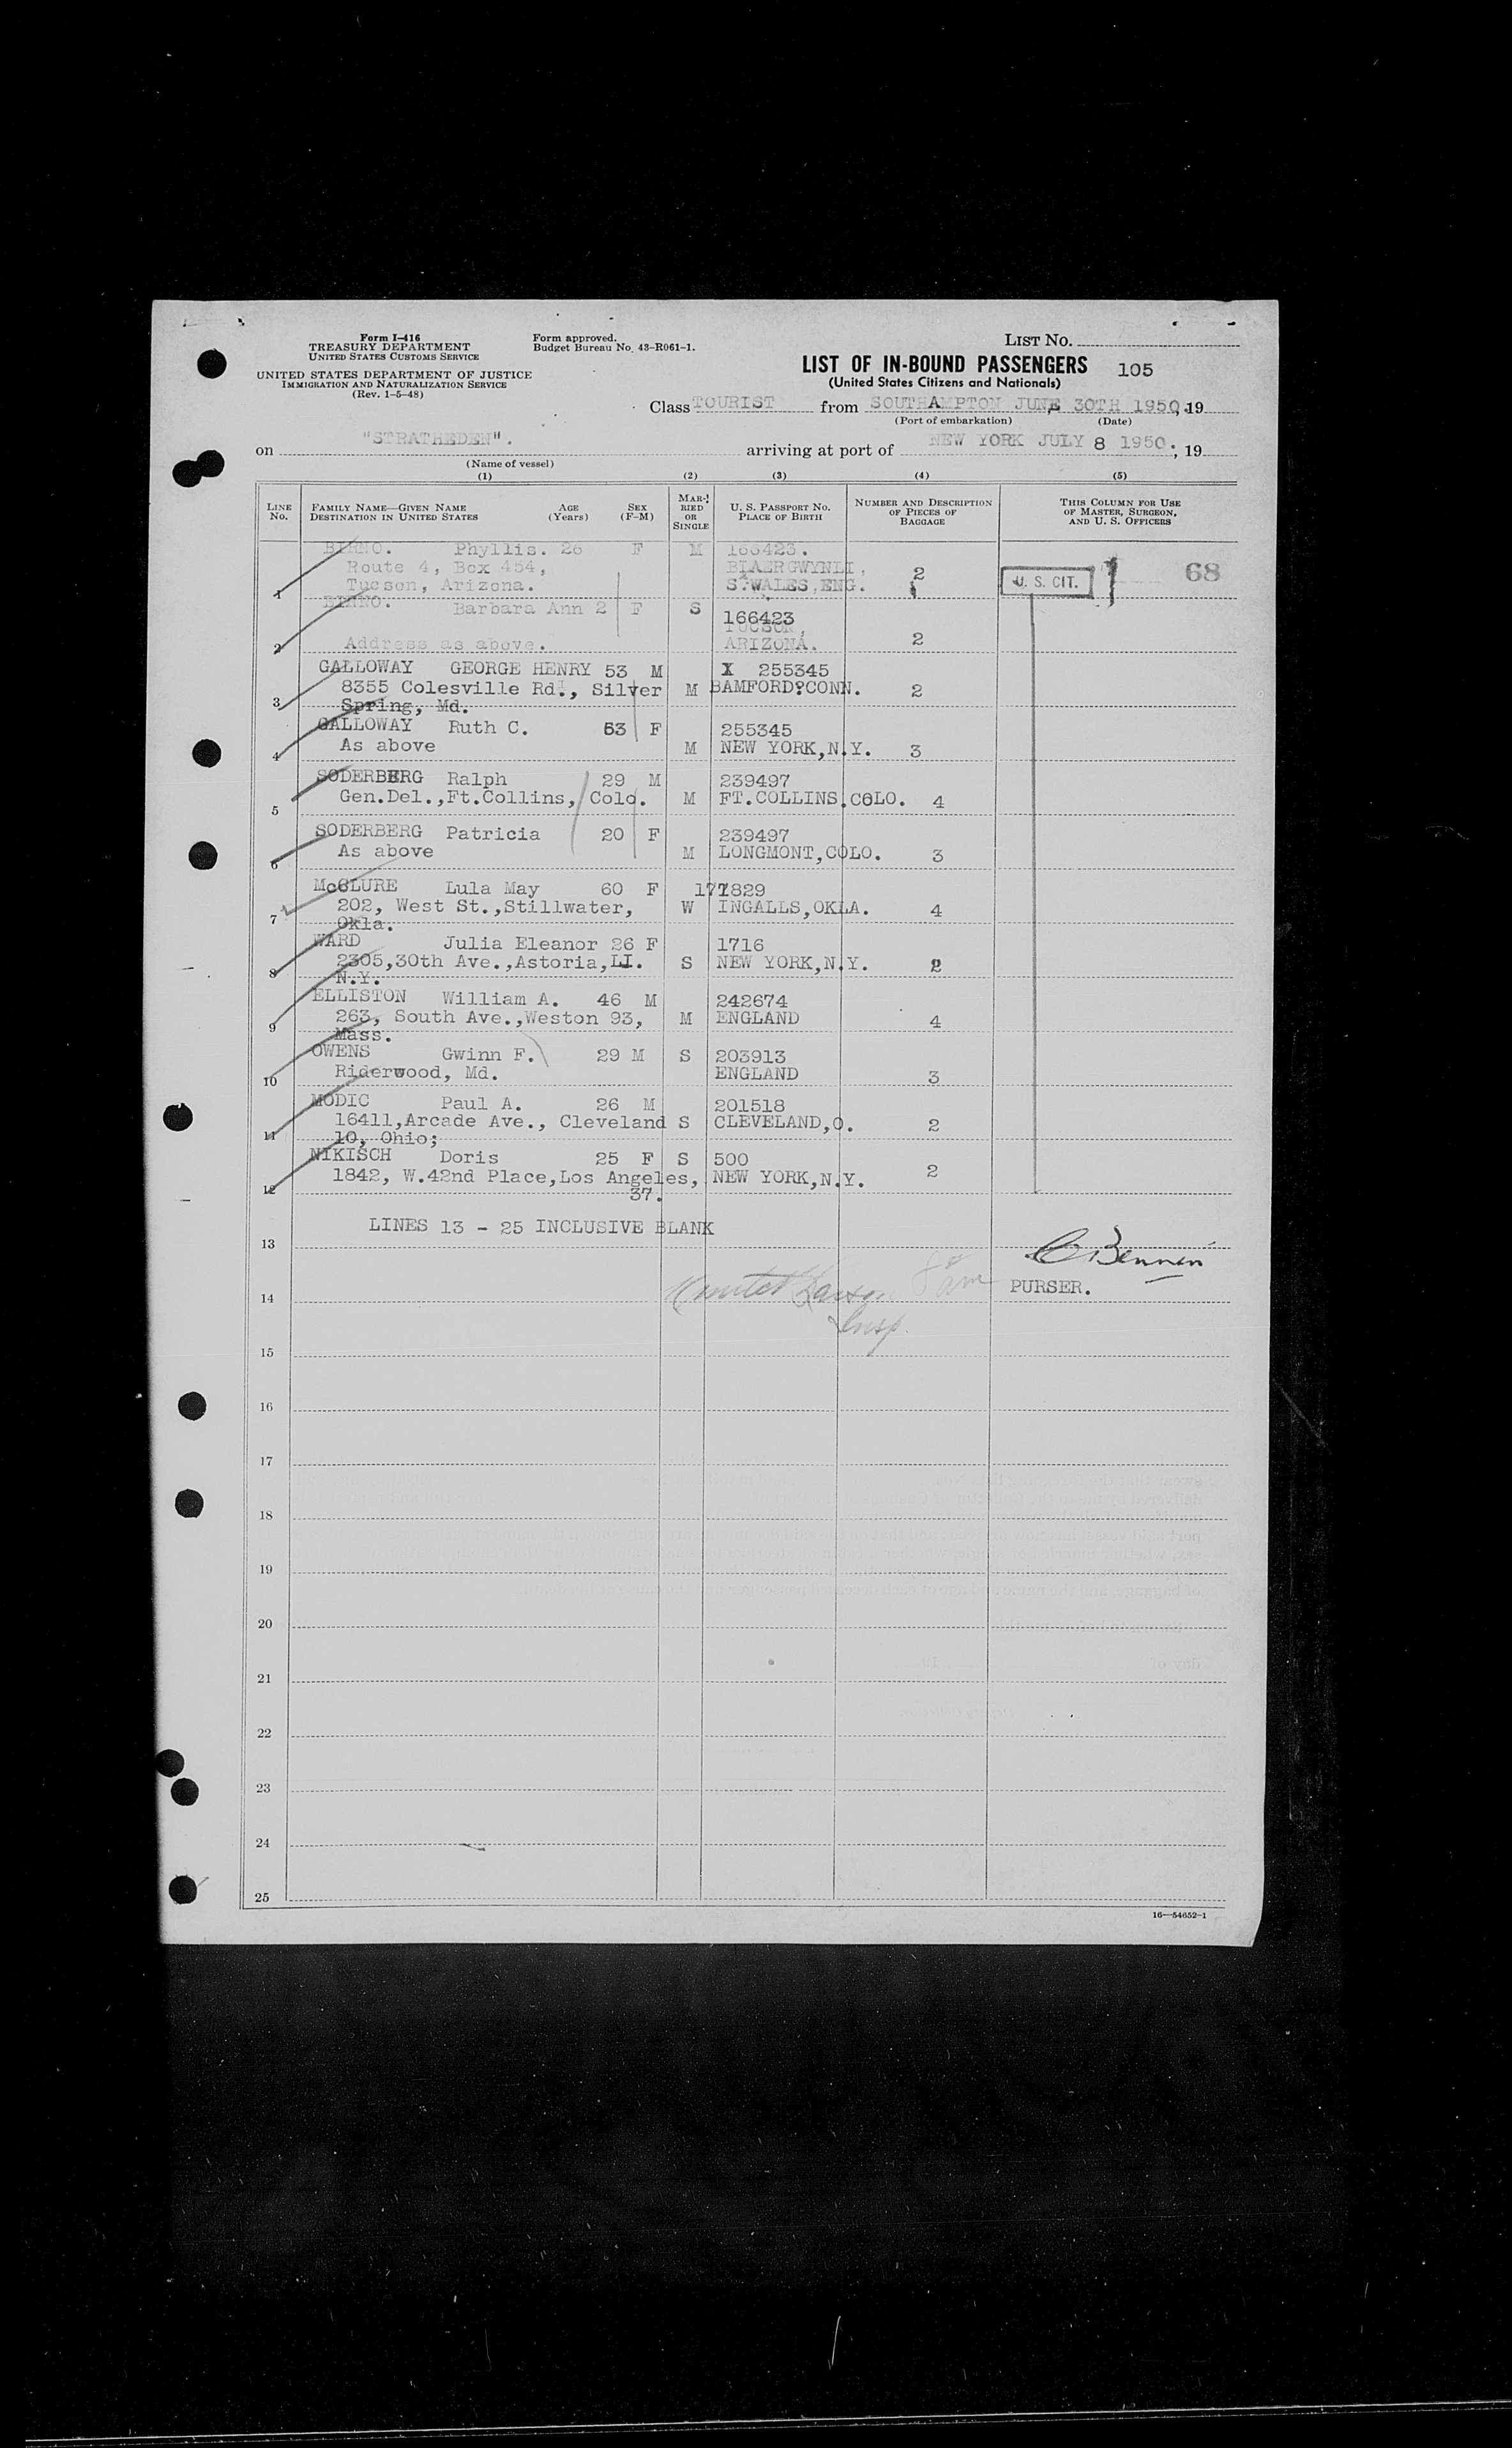 Form I-416
TREASURY DEPARTMENT
UNITED STATES CUSTOMS SERVICE
UNITED STATES DEPARTMENT OF JUSTICE
IMMIGRATION AND NATURALIZATION SERVICE
(Rev. 1-5-48)
Form approved.
Budget Bureau No. 43-R061-1.
LIST NO.
LIST OF IN-BOUND PASSENGERS 105
(United States Citizens and Nationals)
Class TOURIST from SOUTHAMPTON JUNE 30TH 1950, 19
(Port of embarkation) (Date)
on "STRATHEDEN". arriving at port of NEW YORK JULY 8 1950; 19
(Name of vessel)
(1) (2) (3) (4) (5)
LINE NO. FAMILY NAME—GIVEN NAME AGE SEX MARRIED OR SINGLE U. S. PASSPORT NO. NUMBER AND DESCRIPTION OF PIECES OF BAGGAGE THIS COLUMN FOR USE OF MASTER, SURGEON, AND U. S. OFFICERS
DESTINATION IN UNITED STATES (Years) (F-M) PLACE OF BIRTH
Phyllis. 26 F M 166423.
Route 4, Box 454, 2 U. S. CIT. 68
1 Tucson, Arizona. S.WALES,ENG.
Barbara Ann 2 F S 166423
TUCSON,
2 Address as above. ARIZONA. 2
GALLOWAY GEORGE HENRY 53 M X 255345
8355 Colesville Rd., Silver M BAMFORD?CONN. 2
3 Spring, Md.
GALLOWAY Ruth C. 53 F 255345
4 As above M NEW YORK,N.Y. 3
SODERBERG Ralph 29 M 239497
5 Gen.Del.,Ft.Collins, Colo. M FT.COLLINS,COLO. 4
SODERBERG Patricia 20 F 239497
6 As above M LONGMONT,COLO. 3
McCLURE Lula May 60 F 171829
7 202, West St.,Stillwater, W INGALLS,OKLA. 4
Okla.
WARD Julia Eleanor 26 F 1716
8 2305,30th Ave.,Astoria,LI. S NEW YORK,N.Y. 2
N.Y.
ELLISTON William A. 46 M 242674
9 263, South Ave.,Weston 93, M ENGLAND 4
Mass.
OWENS Gwinn F. 29 M S 203913
10 Riderwood, Md. ENGLAND 3
MODIC Paul A. 26 M 201518
11 16411,Arcade Ave., Cleveland S CLEVELAND,O. 2
10, Ohio;
NIKISCH Doris 25 F S 500
12 1842, W.42nd Place,Los Angeles, NEW YORK,N.Y. 2
37.
LINES 13 - 25 INCLUSIVE BLANK
13
14 PURSER.
Insp.
15
16
17
18
19
20
21
22
23
24
25
16—54652-1